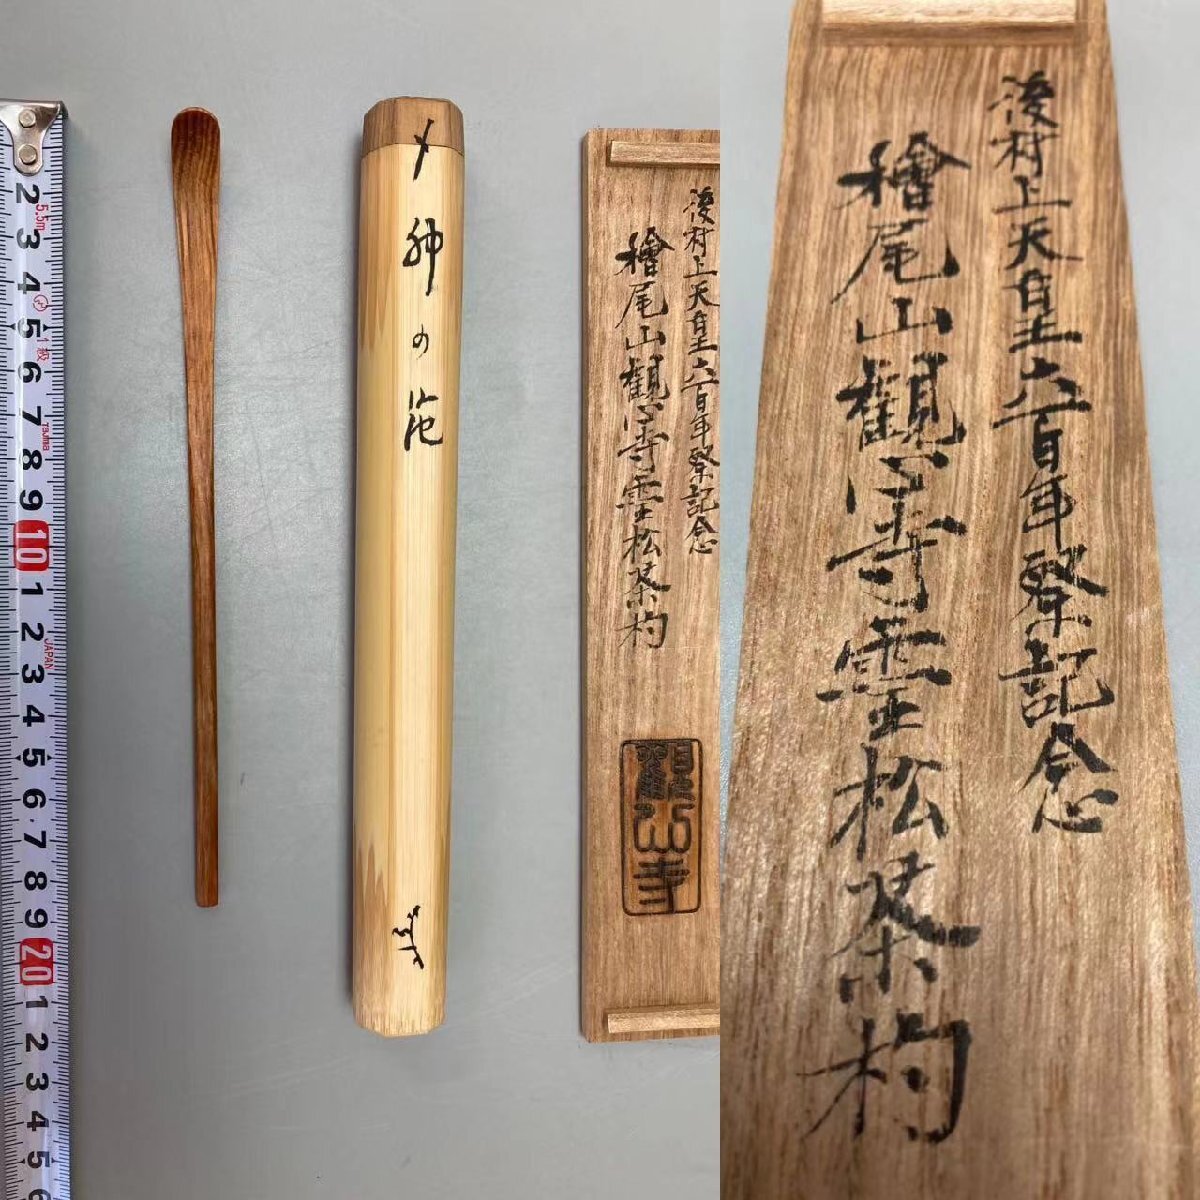 2
3
4
5
6
7
8
9
10
1
2
3
4
5
6
7
8
9
20
1
2
3
4
5
6
5.5m
1級
TAJIMA
JAPAN
〆
神の苑
後村上天皇六百年祭記念
檜尾山觀心寺霊松茶杓
觀心寺
後村上天皇六百年祭記念
檜尾山觀心寺霊松茶杓